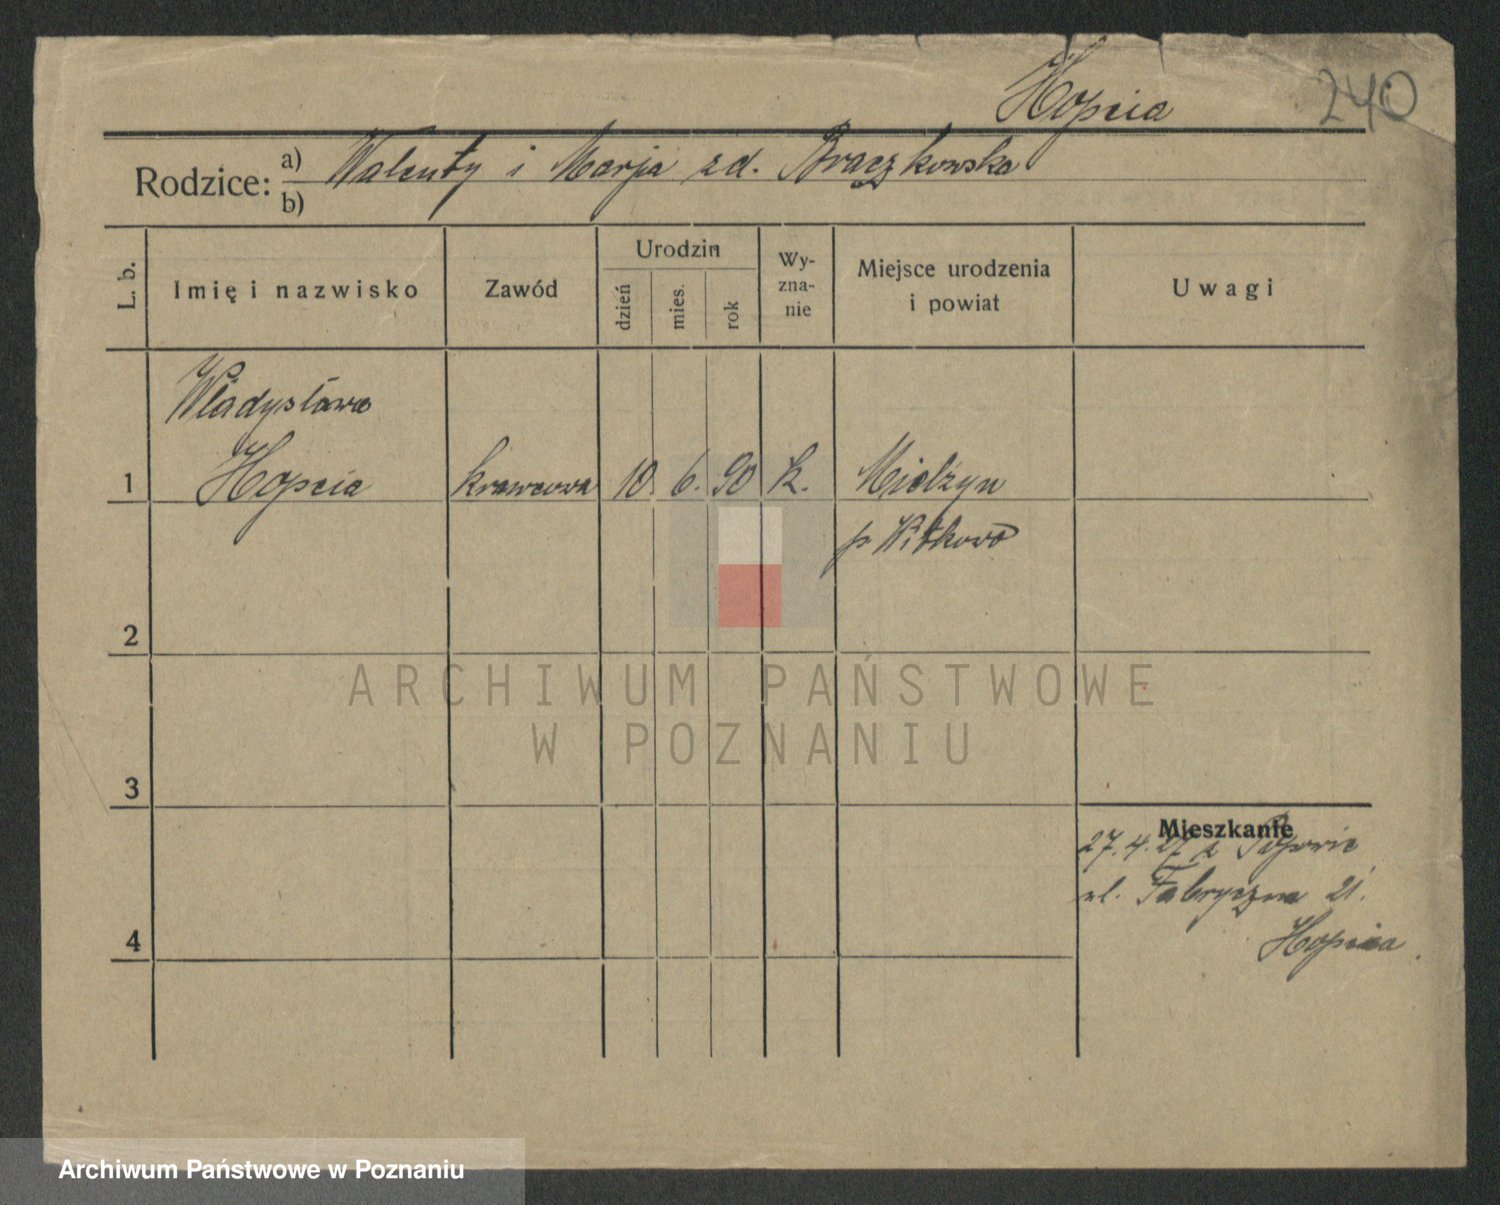 Hopcia 240
Rodzice: a) Walenty i Marja zd. Brączkowska
b)
L. b. Imię i nazwisko Zawód Urodzin dzień mies. rok Wy-zna-nie Miejsce urodzenia i powiat Uwagi
Władysława
1 Hopcia krawcowa 10. 6. 90 k. Mielżyn
p Witkowo
2
3
Mieszkanie
27.4.27 z
ul. Fabryczna 21.
4 Hopcia
ARCHIWUM PAŃSTWOWE
W POZNANIU
Archiwum Państwowe w Poznaniu